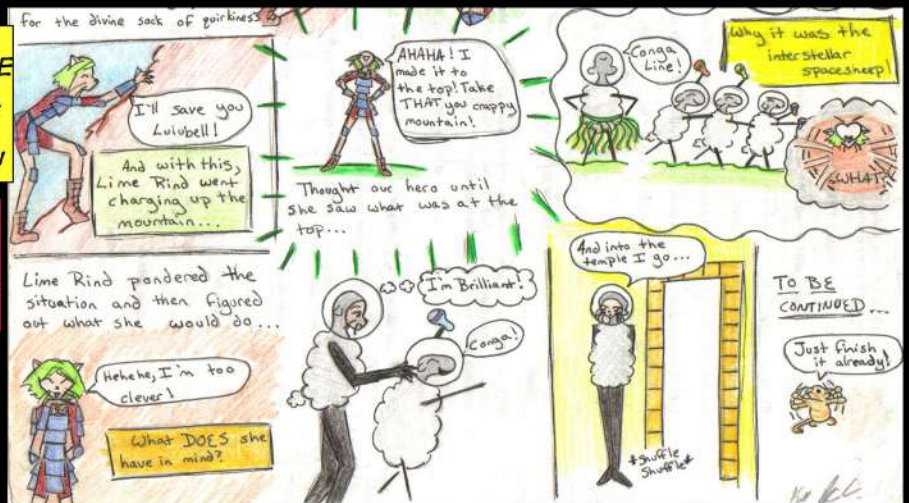 for the divine sock of quirkiness
E
I'll save you
Lulubell!
And with this,
Lime Rind went
charging up the
mountain...
AHAHA! I
made it to
the top! Take
THAT you crappy
mountain!
Thought our hero until
she saw what was at the
top...
Why it was the
interstellar
spacesheep!
Conga
Line!
WHAT?
Lime Rind pondered the
situation and then figured
out what she would do...
Hehehe, I'm too
clever!
What DOES she
have in mind?
I'm Brilliant!
Conga!
And into the
temple I go...
*shuffle
shuffle*
TO BE
CONTINUED...
Just finish
it already!